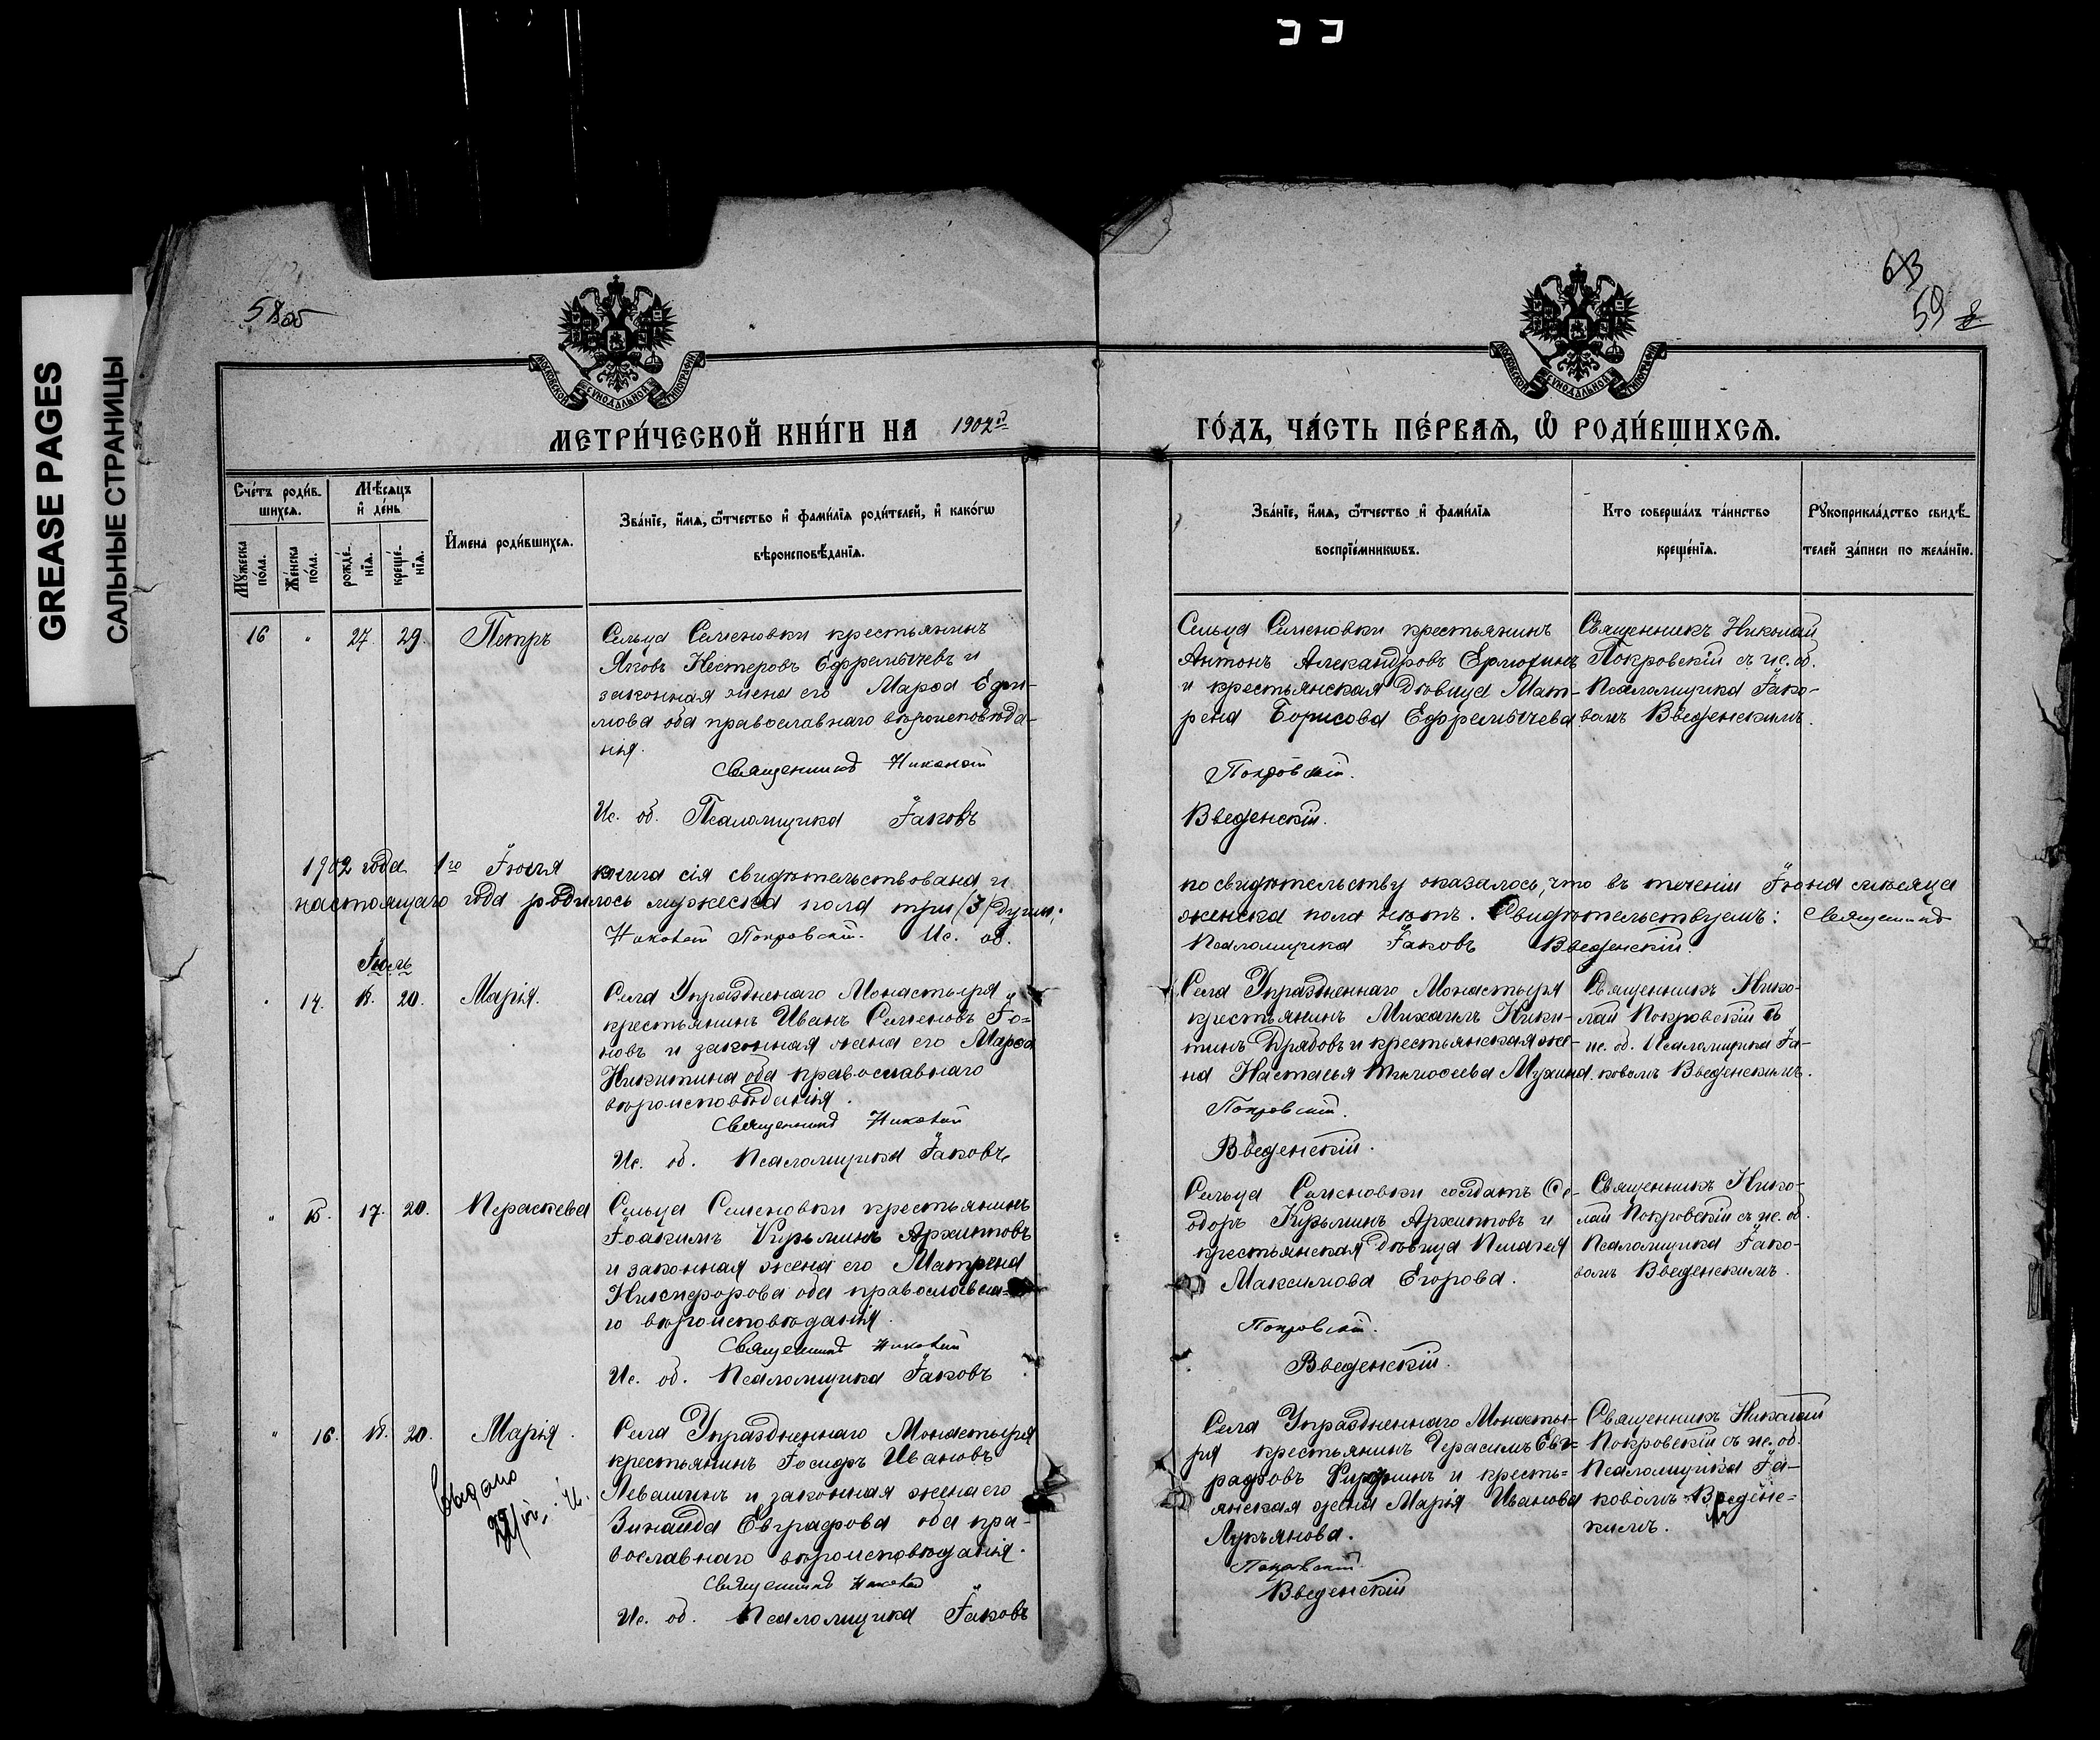 GREASE PAGES
САЛЬНЫЕ СТРАНИЦЫ
58об
59
МОСКОВСКОЙ СѴНОДАЛЬНОЙ ТИПОГРАФІИ
МОСКОВСКОЙ СѴНОДАЛЬНОЙ ТИПОГРАФІИ
МЕТРИ́ЧЕСКОЙ КНИ́ГИ НА 1902й
ГО́ДЪ, ЧА́СТЬ ПЕ́РВАѦ, Ѽ РОДИ́ВШИХСѦ.
Сче́тъ роди́в-
шихсѧ.
Мѣ́сѧцъ
и҆ де́нь
Мꙋ́жеска
по́ла.
Же́нска
по́ла.
рожде́-
нїѧ.
креще́-
нїѧ.
И҆мена роди́вшихсѧ.
Зва́нїе, и҆́мѧ, ѻ҆́тчество и҆ фами́лїѧ роди́телей, и҆ како́гѡ
вѣроисповѣ́данїѧ.
Зва́нїе, и҆́мѧ, ѻ҆́тчество и҆ фами́лїѧ
воспрїе́мникѡвъ.
Кто соверша́лъ та́инство
креще́нїѧ.
Рꙋкоприкла́дство свидѣ́-
телей за́писи по жела́нїю.
16 " 27. 29. Петръ
Сельца Семеновки крестьянинъ
Яковъ Нестеровъ Ефремычевъ и
законная жена его Марѳа Ефи-
мова оба православнаго вѣроисповѣда-
нія.
Священникъ Николай
Ис. об. Псаломщика Іаковъ
Сельца Семеновки крестьянинъ
Антонъ Александровъ Ермохинъ
и крестьянская дѣвица Мат-
рена Борисова Ефремычева
Покровскій.
Введенскій.
Священникъ Николай
Покровскій съ ис. об.
Псаломщика Іако-
вомъ Введенскимъ.
1902 года 1го Іюля книга сія свидѣтельствована и по свидѣтельству оказалось, что въ теченіи Іюня мѣсяца
настоящаго года родилось мужеска пола три /3/ души. женска пола нѣтъ. Свидѣтельствуемъ: Священникъ
Николай Покровскій. Ис. об. Псаломщика Іаковъ Введенскій.
Іюль
" 14. 18. 20. Марія.
Села Упраздненнаго Монастыря
крестьянинъ Иванъ Семеновъ Іо-
новъ и законная жена его Марѳа
Никитина оба православнаго
вѣроисповѣданія.
Священникъ Николай
Ис. об. Псаломщика Іаковъ
Села Упраздненнаго Монастыря
крестьянинъ Михаилъ Ники-
тинъ Дрябовъ и крестьянская же-
на Настасья Тимоѳеева Мухина.
Покровскій.
Введенскій.
Священникъ Нико-
лай Покровскій съ
ис. об. Псаломщика Іа-
ковомъ Введенскимъ.
" 15. 17. 20. Параскева
Сельца Семеновки крестьянинъ
Іоакимъ Кузьминъ Архиповъ
и законная жена его Матрена
Никифорова оба православна-
го вѣроисповѣданія.
Священникъ Николай
Ис. об. Псаломщика Іаковъ
Сельца Семеновки солдатъ Ѳе-
одоръ Кузьминъ Архиповъ и
крестьянская дѣвица Пелагея
Максимова Егорова.
Покровскій.
Введенскій.
Священникъ Нико-
лай Покровскій съ ис. об.
Псаломщика Іако-
вомъ Введенскимъ.
" 16. 18. 20. Марія.
Села Упраздненнаго Монастыря
крестьянинъ Іосифъ Ивановъ
Левашинъ и законная жена его
Зинаида Евграфова оба пра-
вославнаго вѣроисповѣданія.
Священникъ Николай
Ис. об. Псаломщика Іаковъ
Села Упраздненнаго Монасты-
ря крестьянинъ Герасимъ Евг-
рафовъ и кресть-
янская жена Марія Иванова
Лукьянова.
Покровскій.
Введенскій
Священникъ Николай
Покровскій съ ис. об.
Псаломщика Іа-
ковомъ Введенс-
кимъ.